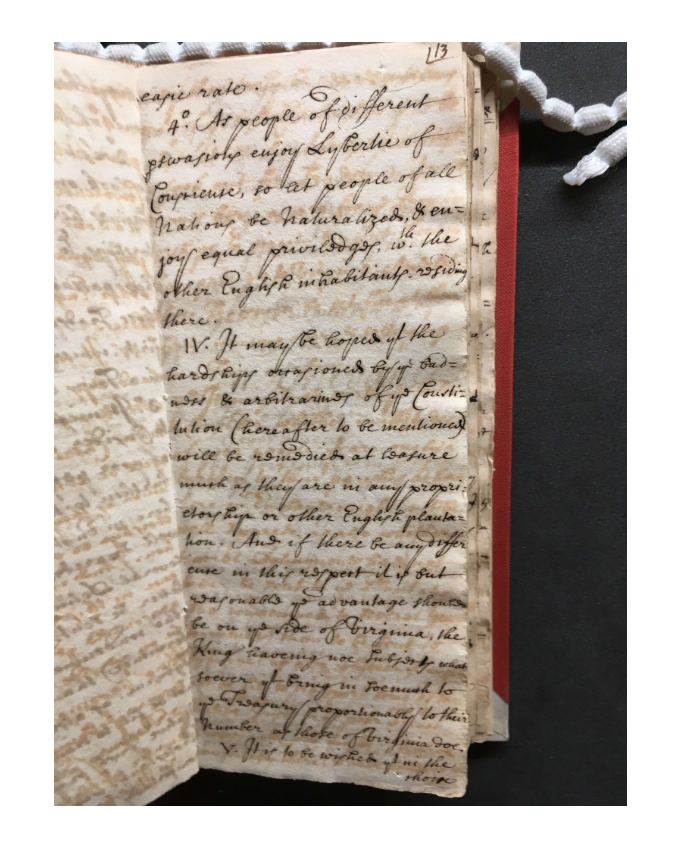 13
easie rate.
4º. As people of different
pswasions enjoy Lybertie of
Consciense, so let people of all
Nations be Naturalized, & en=
joys equal priviledges, wth. the
other English inhabitants residing
there.
IV. It may be hoped yt the
hardships occasioned by ye bad=
ness & arbitrarines of ye Consti=
tution (hereafter to be mentioned)
will be remedied at leasure
much as they are in any propri=
etorship or other English planta=
tion. And if there be any differ
ence in this respect it is but
reasonable ye advantage should
be on ye side of Virginia, the
King haveing noe Subjects what
soever yt bring in soe much to
ye Treasury proportionably to their
Number as those of Virginia doe.
V. It is to be wished yt in the
choise